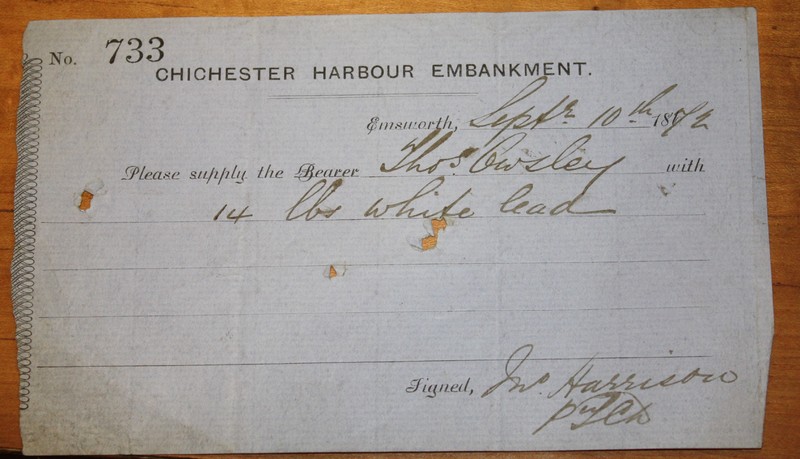 No. 733
CHICHESTER HARBOUR EMBANKMENT.
Emsworth, Septr 10th 1872
Please supply the Bearer Thos. Owsley with
14 lbs white lead
Signed, Jno. Harrison